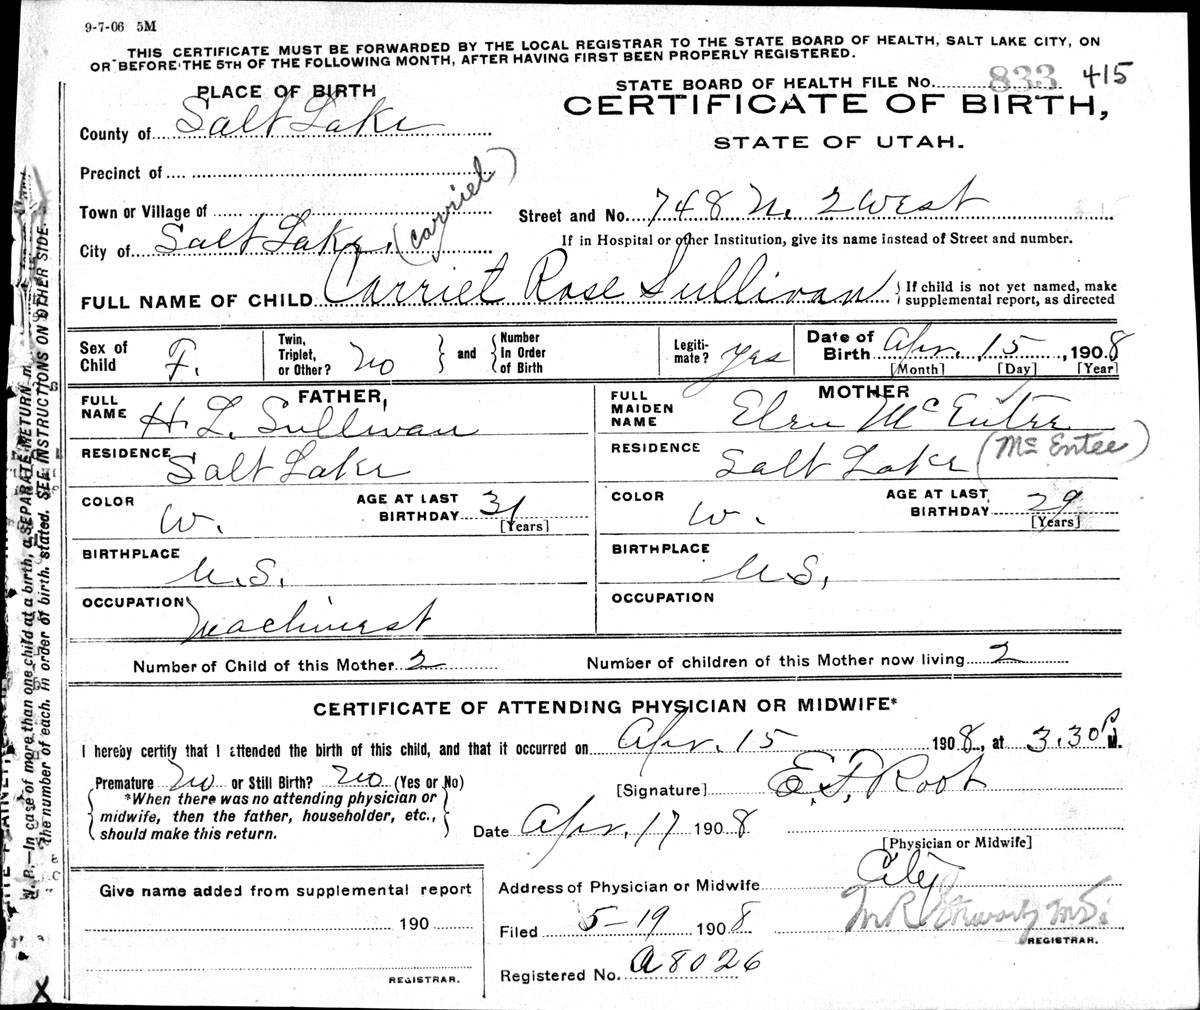 9-7-06 5M
THIS CERTIFICATE MUST BE FORWARDED BY THE LOCAL REGISTRAR TO THE STATE BOARD OF HEALTH, SALT LAKE CITY, ON
OR BEFORE THE 5TH OF THE FOLLOWING MONTH, AFTER HAVING FIRST BEEN PROPERLY REGISTERED.
STATE BOARD OF HEALTH FILE No. 833 415
CERTIFICATE OF BIRTH,
STATE OF UTAH.
PLACE OF BIRTH
County of Salt Lake
Precinct of
Town or Village of
City of Salt Lake. (Carriel)
Street and No. 748 N. 2 West
If in Hospital or other Institution, give its name instead of Street and number.
FULL NAME OF CHILD Carriel Rose Sullivan { If child is not yet named, make
supplemental report, as directed
Sex of Child F.
Twin, Triplet, or Other? No } and { Number in Order of Birth
Legitimate? Yes
Date of Birth Apr. 15, 1908
[Month] [Day] [Year]
FATHER,
FULL NAME H. L. Sullivan
RESIDENCE Salt Lake
COLOR W.
AGE AT LAST BIRTHDAY 31
[Years]
BIRTHPLACE U.S.
OCCUPATION Machinest
MOTHER
FULL MAIDEN NAME Elen McEntee
RESIDENCE Salt Lake (McEntee)
COLOR W.
AGE AT LAST BIRTHDAY 29
[Years]
BIRTHPLACE U.S.
OCCUPATION
Number of Child of this Mother 2
Number of children of this Mother now living 2
CERTIFICATE OF ATTENDING PHYSICIAN OR MIDWIFE*
I hereby certify that I attended the birth of this child, and that it occurred on Apr. 15 1908, at 3.30 P M.
Premature No or Still Birth? No (Yes or No)
*When there was no attending physician or
midwife, then the father, householder, etc.,
should make this return.
[Signature] E. F. Root
Date Apr. 17 1908
[Physician or Midwife]
Give name added from supplemental report
190
REGISTRAR.
Address of Physician or Midwife City
Filed 5-19 1908
REGISTRAR.
Registered No. A8026
N. B.—In case of more than one child at a birth, a SEPARATE RETURN m
the number of each, in order of birth, stated. SEE INSTRUCTIONS ON OTHER SIDE.
X